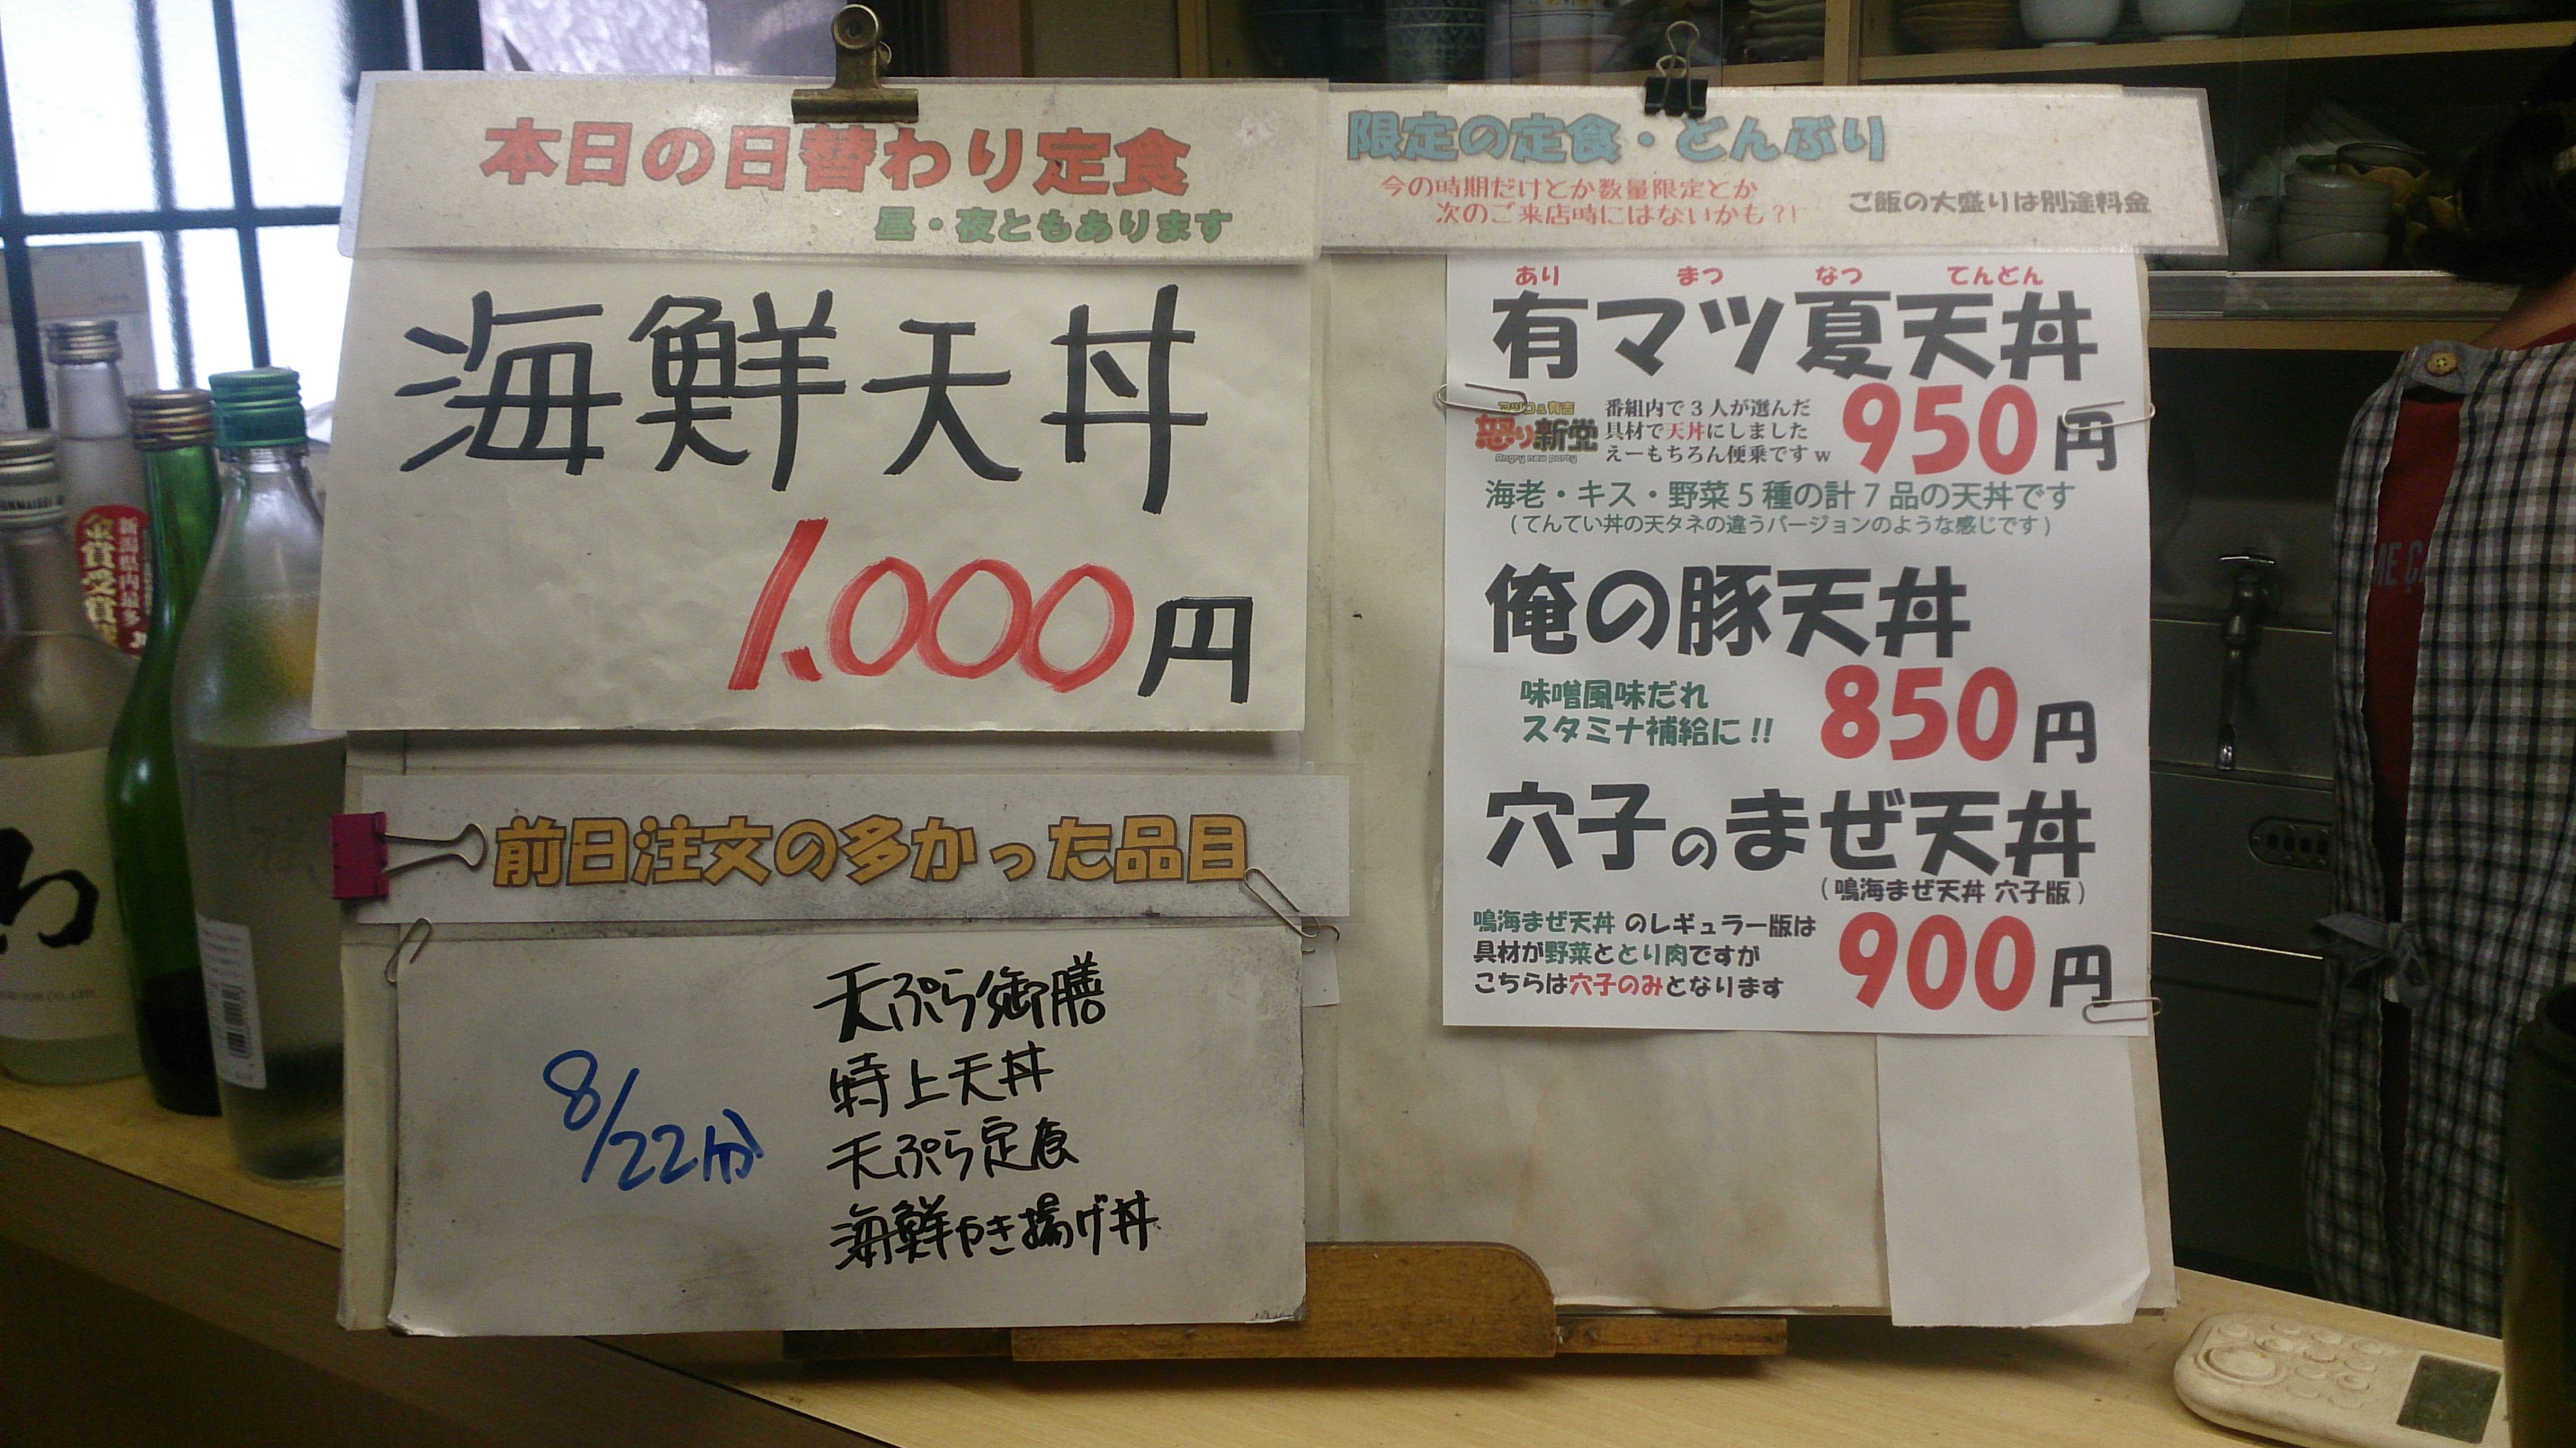 本日の日替わり定食
昼・夜ともあります
海鮮天丼
1.000円
前日注文の多かった品目
8/22分
天ぷら御膳
特上天丼
天ぷら定食
海鮮かき揚げ丼
限定の定食・どんぶり
今の時期だけとか数量限定とか
次のご来店時にはないかも?!
ご飯の大盛りは別途料金
あり まつ なつ てんどん
有マツ夏天丼
マツコ&有吉
怒り新党
Angry new party
番組内で3人が選んだ
具材で天丼にしました
えーもちろん便乗ですw
950円
海老・キス・野菜5種の計7品の天丼です
(てんてい丼の天タネの違うバージョンのような感じです)
俺の豚天丼
味噌風味だれ
スタミナ補給に!!
850円
穴子のまぜ天丼
(鳴海まぜ天丼 穴子版)
鳴海まぜ天丼 のレギュラー版は
具材が野菜ととり肉ですが
こちらは穴子のみとなります
900円
新潟県内最多
金賞受賞